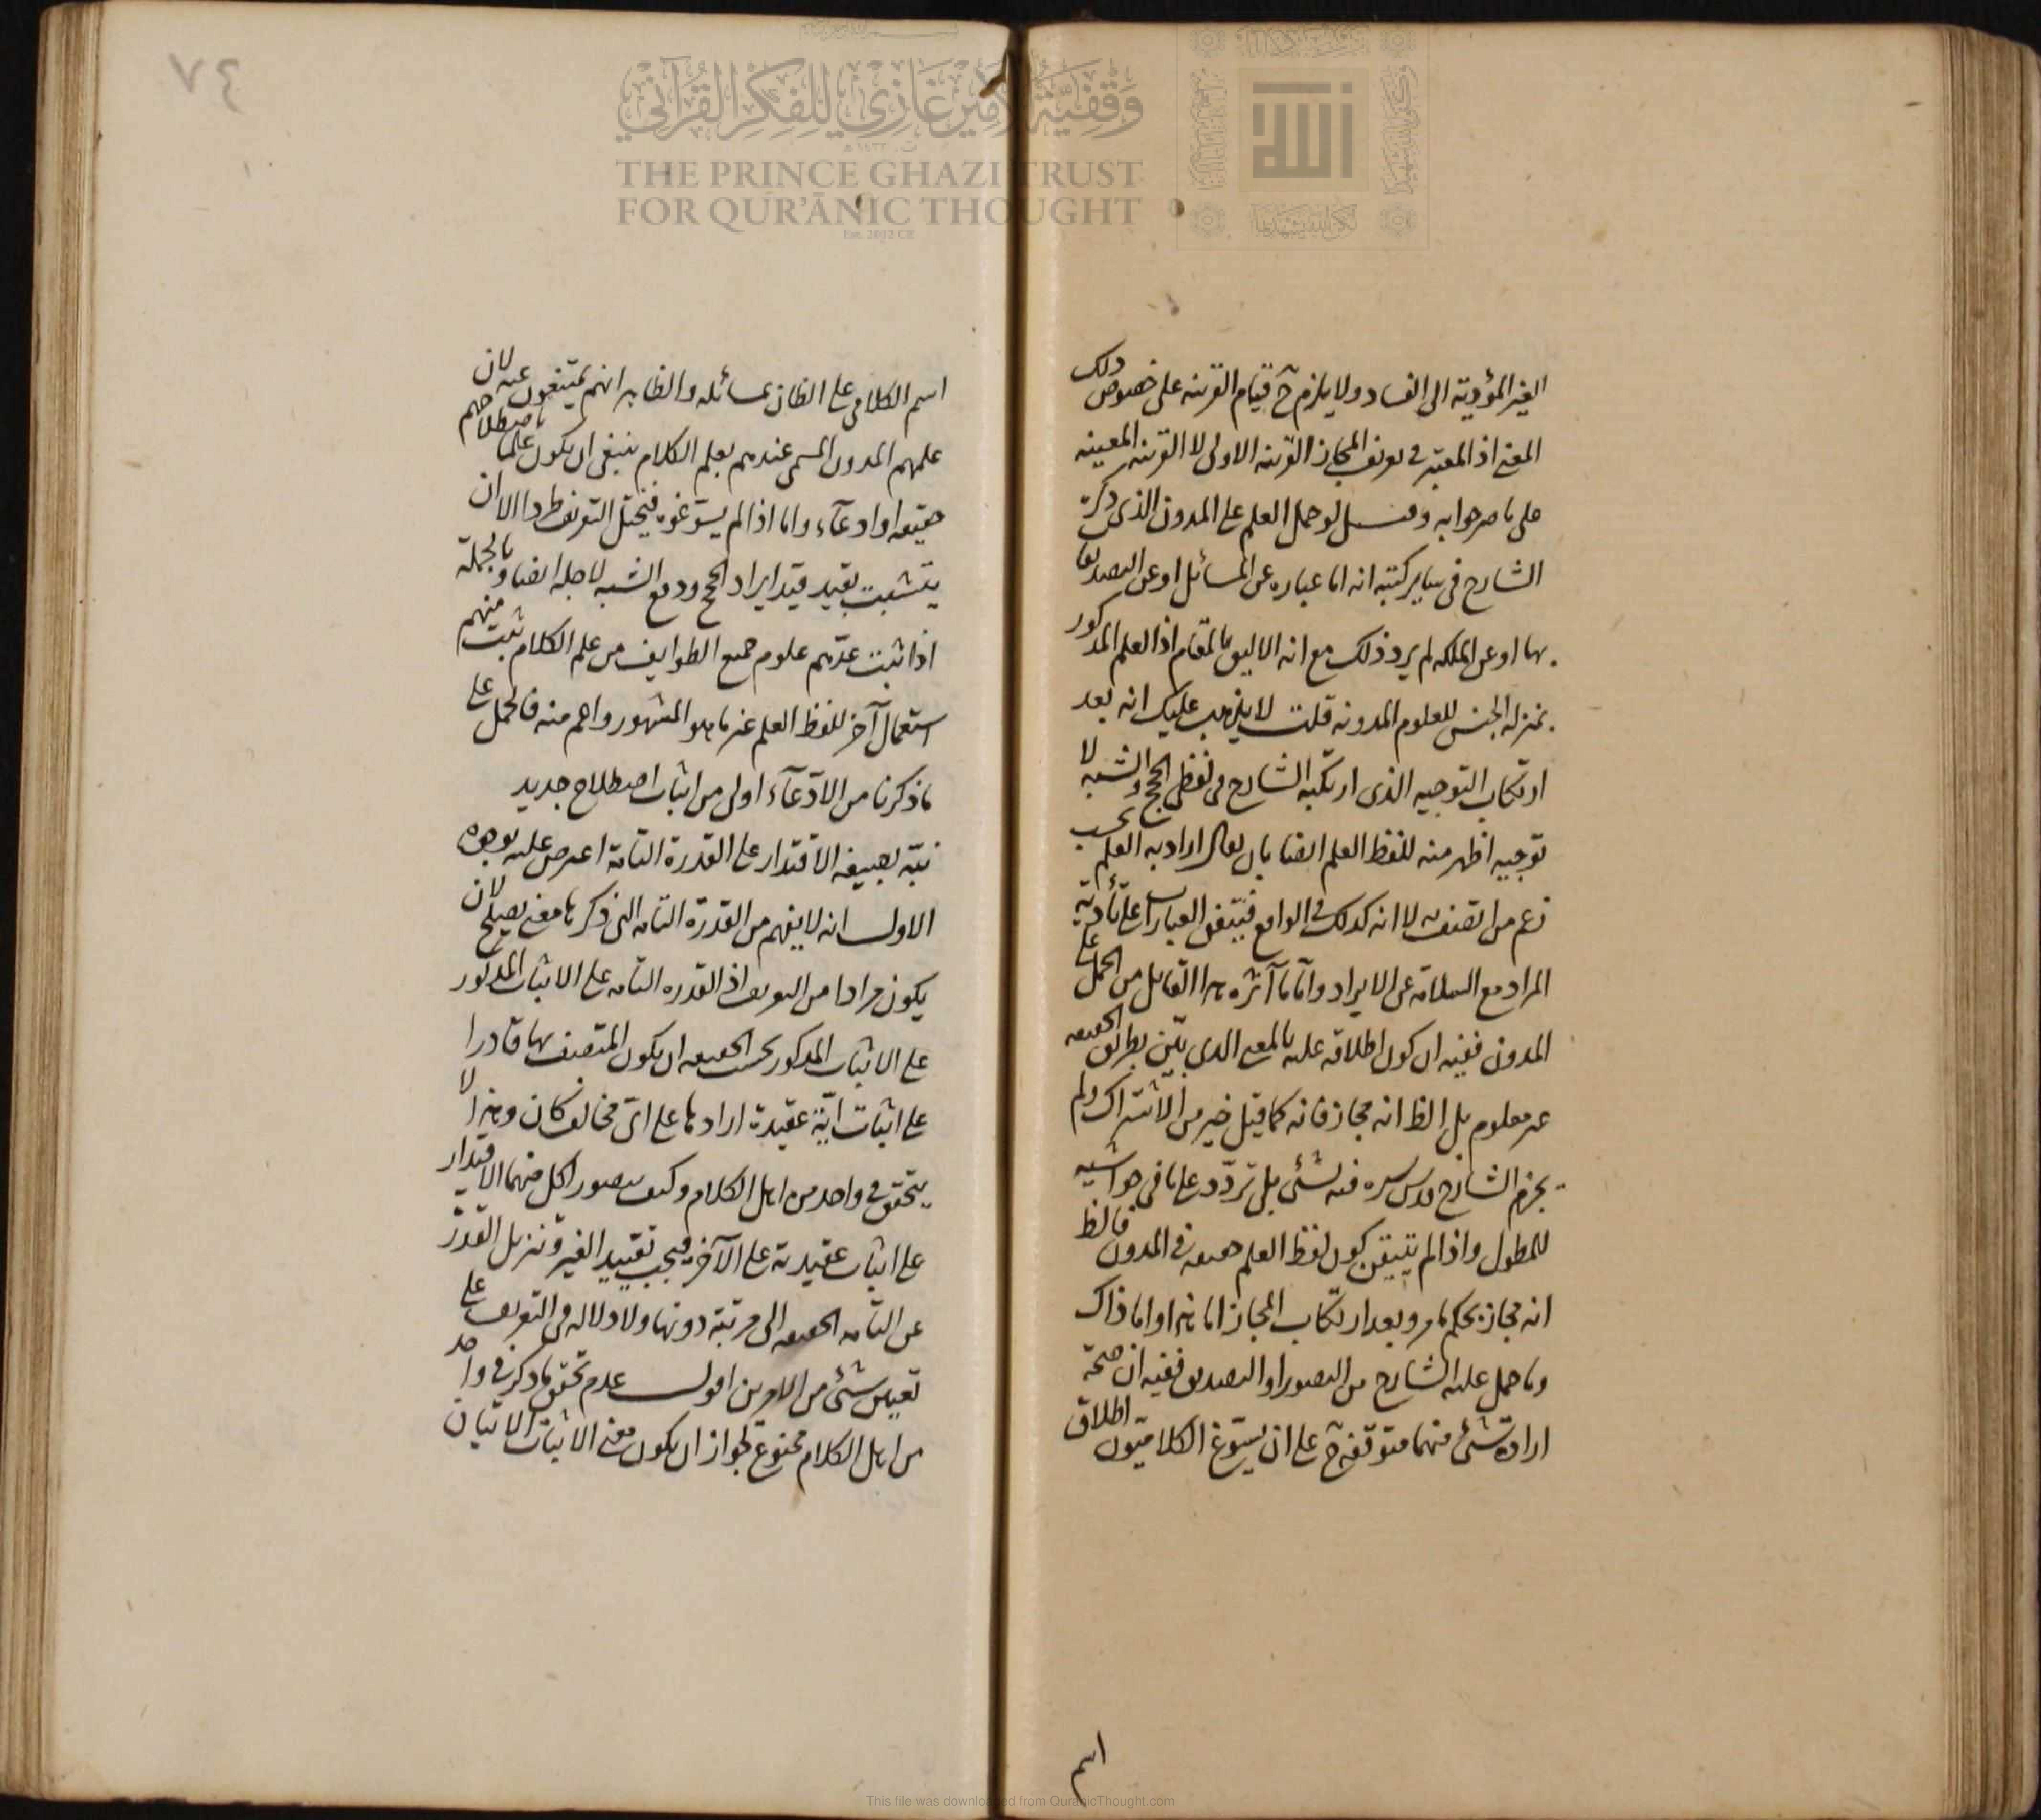 الغير المؤدية الى الفساد ولا يلزم ح قيام القرينه على خصوص ذلك
المعنى اذ المعتبر فى تعريف المجاز القرينه الاولى لا القرينه المعينه
على ما صرحوا به وقيل لو حمل العلم على المدون الذى ذكره
الشارح فى ساير كتبه انه اما عباره عن المسائل او عن التصديق
بها او عن الملكه لم يرد ذلك مع انه الاليق بالمقام اذ العلم المذكور
بمنزله الجنس للعلوم المدونه قلت لا يذهب عليك انه بعد
ارتكاب التوجيه الذى ارتكبه الشارح فى لفظى الحجج والشبه لا
توجيه اظهر منه للفظ العلم ايضا بان يقال اراد به العلم بحسب
زعم من اتصف به لا انه كذلك فى الواقع فيتفق العبارات على تأدية
المراد مع السلامة عن الايراد واما ما آثره هذا القايل من الحمل على
المدون ففيه ان كون اطلاقه عليه بالمعنى الذى بيّن بطريق الحقيقه
غير معلوم بل الظ انه مجاز فانه كما قيل خير من الاشتراك ولم
يجزم الشارح قدس سره فيه بشئ بل تردّد على ما فى حواشيه
للمطول واذا لم يتيقن كون لفظ العلم حقيقه فى المدون فالظ
انه مجاز بحكم ما مر وبعد ارتكاب المجاز اما هذا واما ذاك
وما حمل عليه الشارح من التصور او التصديق ففيه ان صحة
ارادة شئ منهما متوقفة على ان يسوّغ الكلاميّون اطلاق
اسم
٤٧
اسم الكلامى على الظان بمسائله والظاهر انهم يمتنعون عنه لان
علمهم المدون المسمى عندهم بعلم الكلام ينبغى ان يكون علما باصطلاحهم
حقيقه او ادعآء واما اذا لم يسوّغوه فيختل التعريف طردا الا ان
يتشبث بقيد قيد ايراد الحجج ودفع الشبه لاجله ايضا وبالجملة
اذا ثبت عدّهم علوم جميع الطوايف من علم الكلام ثبت منهم
استعمال آخر للفظ العلم غير ما هو المشهور واهم منه فالحمل على
ما ذكرنا من الادّعآء اولى من اثبات اصطلاح جديد
نبّه بصيغه الاقتدار على القدرة التامة اعترض عليه بوجوه
الاول انه لا يفهم من القدرة التامه التى ذكرها معنى يصلح لان
يكون مرادا من التعريف اذ القدره التامه على الاثبات المذكور
على الاثبات المذكور بحسب الحقيقه ان يكون المتصف بها قادرا
على اثبات ايّة عقيدة ارادها على اىّ مخالف كان وهذا لا
يتحقق فى واحد من اهل الكلام وكيف يتصور لكل منهما الاقتدار
على اثبات عقيدته على الآخر فيجب تقييد الغير وتنزيل القدرة
عن التامه الحقيقه الى مرتبة دونها ولا دلاله فى التعريف على
تعيين شئ من الامرين اقول عدم تحقق ما ذكر فى واحد
من اهل الكلام ممنوع لجواز ان يكون معنى الاثبات الاتيان
وقفية الأمير غازي للفكر القرآني
THE PRINCE GHAZI TRUST
FOR QUR'ĀNIC THOUGHT
Est. 2012 CE
الله
This file was downloaded from QuranicThought.com